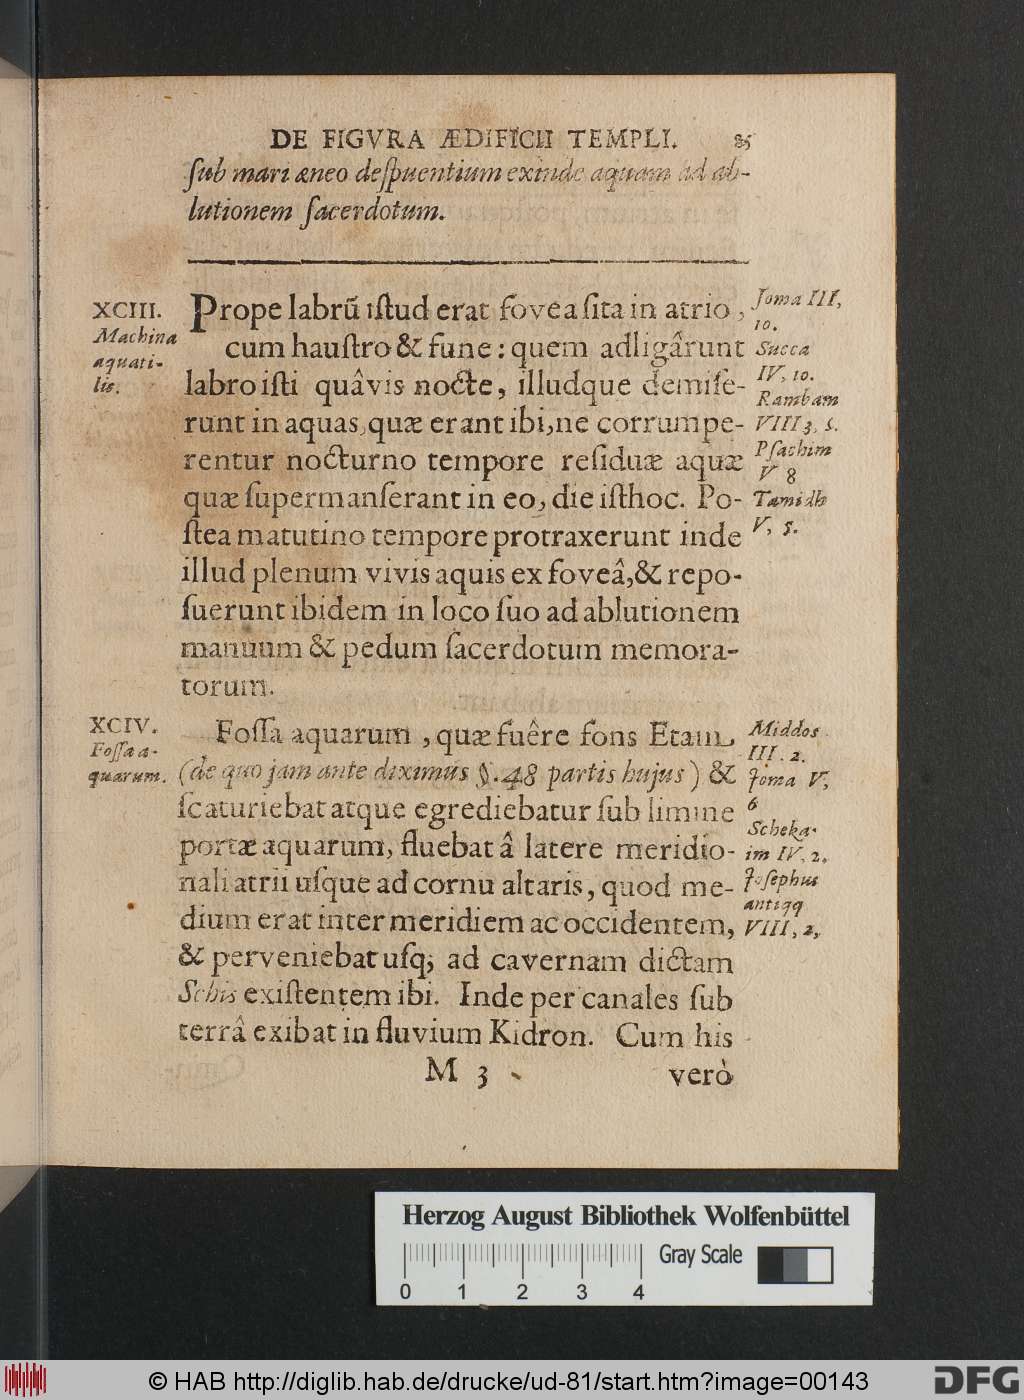 DE FIGVRA ÆDIFICII TEMPLI. 85
ſub mari æneo deſpuentium exinde aquam ad ab-
lutionem ſacerdotum.
XCIII.
Machina
aquati-
lis.
Prope labrũ iſtud erat fovea ſita in atrio,
cum hauſtro & fune: quem adligârunt
labro iſti quâvis nocte, illudque demiſe-
runt in aquas, quæ erant ibi, ne corrumpe-
rentur nocturno tempore reſiduæ aquæ
quæ ſupermanſerant in eo, die iſthoc. Po-
ſtea matutino tempore protraxerunt inde
illud plenum vivis aquis ex foveâ, & repo-
ſuerunt ibidem in loco ſuo ad ablutionem
manuum & pedum ſacerdotum memora-
torum.
Joma III,
10.
Succa
IV, 10.
Rambam
VIII 3, 5.
Pſachim
V 8
Tamidh
V, 5.
XCIV.
Foſſa a-
quarum.
Foſſa aquarum, quæ fuêre fons Etam
(de quo jam ante diximus §. 48 partis hujus) &
ſcaturiebat atque egrediebatur ſub limine
portæ aquarum, fluebat â latere meridio-
nali atrii uſque ad cornu altaris, quod me-
dium erat inter meridiem ac occidentem,
& perveniebat uſq; ad cavernam dictam
Schis exiſtentem ibi. Inde per canales ſub
terrâ exibat in fluvium Kidron. Cum his
Middos
III. 2.
Joma V,
6
Scheka-
im IV, 2.
Joſephus
antiqq
VIII, 2,
M 3
verò
Herzog August Bibliothek Wolfenbüttel
Gray Scale
0 1 2 3 4
© HAB http://diglib.hab.de/drucke/ud-81/start.htm?image=00143
DFG